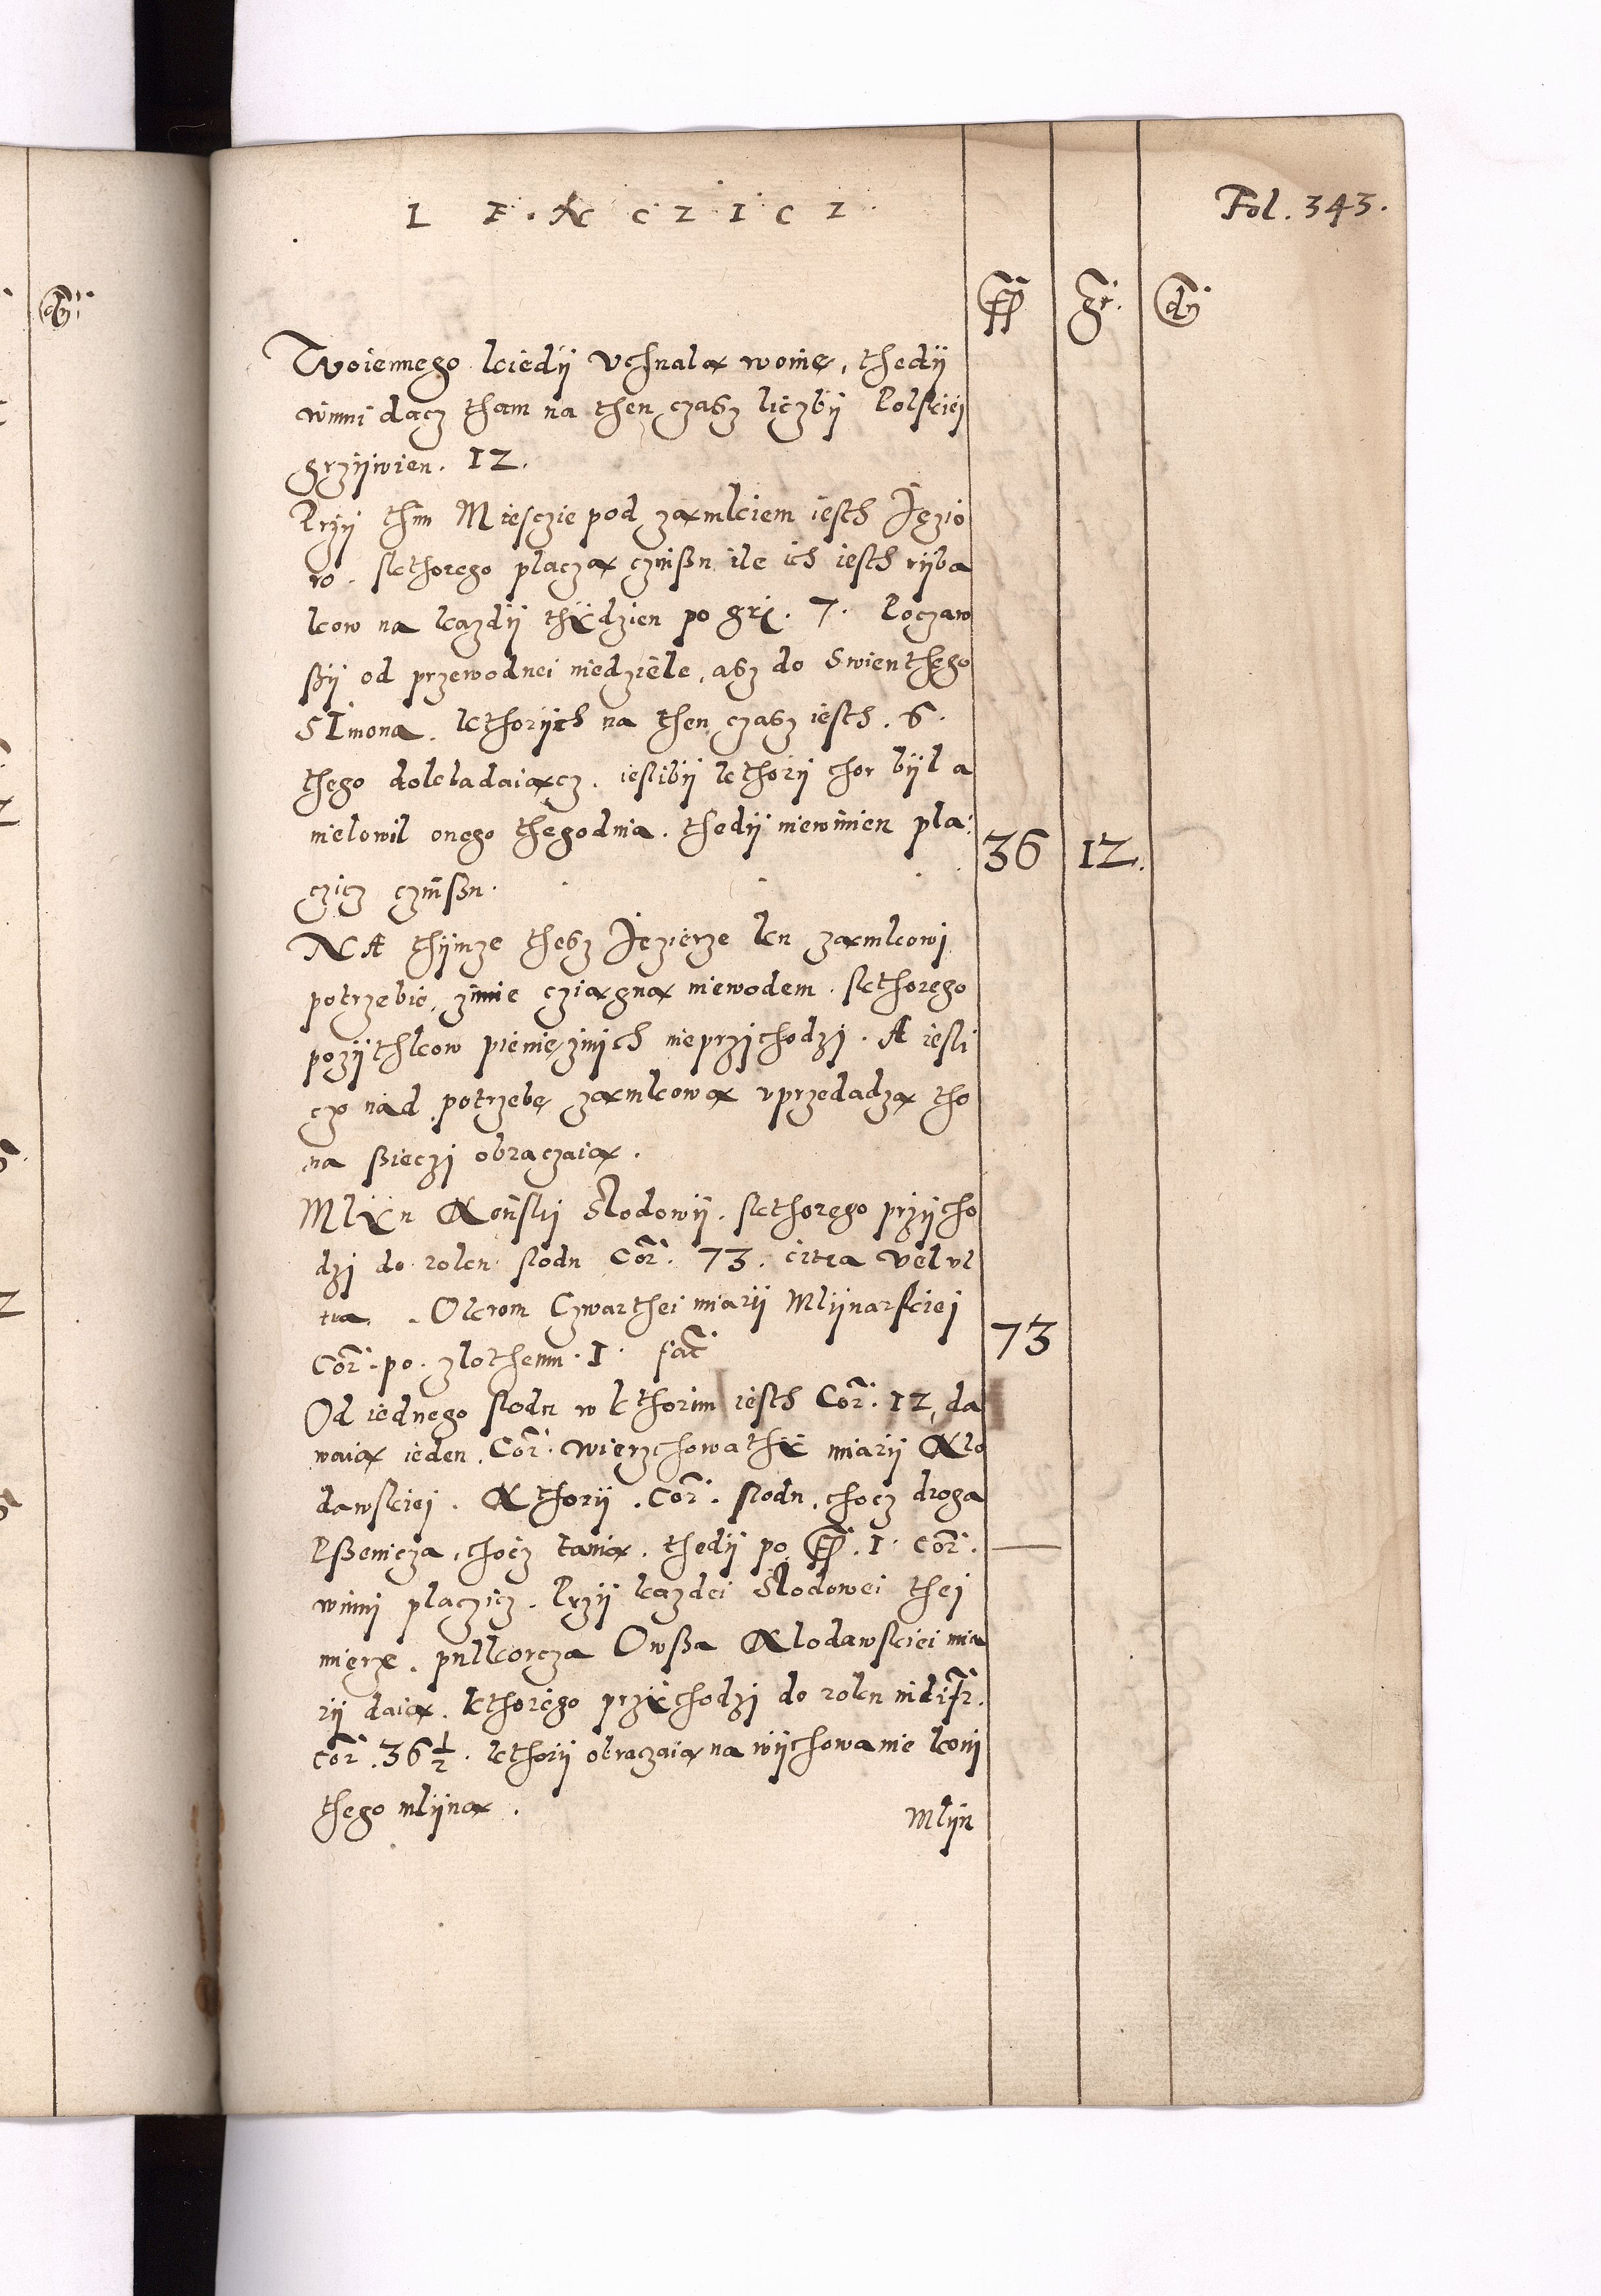 L E N C Z I C I
Fol. 343.
fl gr. dn
Woiennego kiedÿ vchnalą woinę, thedÿ
winni dacz tham na then czasz liczbÿ Polskiei
grzÿwien. 12.
Przÿ thim Miesczie pod zamkiem iesth Jęzio
ro. skthorego placzą czinßu ile ich iesth rÿba
kow na kazdÿ thÿdzien po gr. 7. Poczaw
ßÿ od przewodnei niedziele, asz do Swienthego
SImona. kthorÿch na then czasz iesth. 6.
thego dokladaiącz. ieslibÿ kthorÿ chor bÿl a
nielowil onego thegodnia. thedÿ niewinien pla: 36 12.
czicz czinßu.
NA thÿmze thesz Jęzierze ku zamkowi
potrzebie, zimie cziagną niewodem. skthorego
pozÿthkow pienięznich nieprzichodzi. A iesli
czo nad potrzebę zamkową vprzedadzą tho
na ßieczi obraczaią.
Mlÿn Konski Slodowÿ. skthorego przÿcho
dzi do roku slodu Cor. 73. citra vel vl
tra. Okrom Czwarthei miarÿ Mlÿnarskiei 73
Cor. po. zlothemu. 1. fac
Od iednego slodu w kthorim iesth Cor. 12, da
waią ieden. Cor. wierzchowathÿ miarÿ Klo
dawskiei. Kthorÿ. Cor. slodu, chocz droga
Pßenicza, chocz tania. thedÿ po. fl. 1. Cor.
winni placzicz. Przÿ kazdei Slodowei thei
mierze. pulkorcza Owßa Klodawskiei mia
rÿ daią. kthorego przÿchodzi do roku
Cor. 36 1/2. kthorÿ obraczaią na wÿchowanie koni
thego mlÿna.
Mlÿn